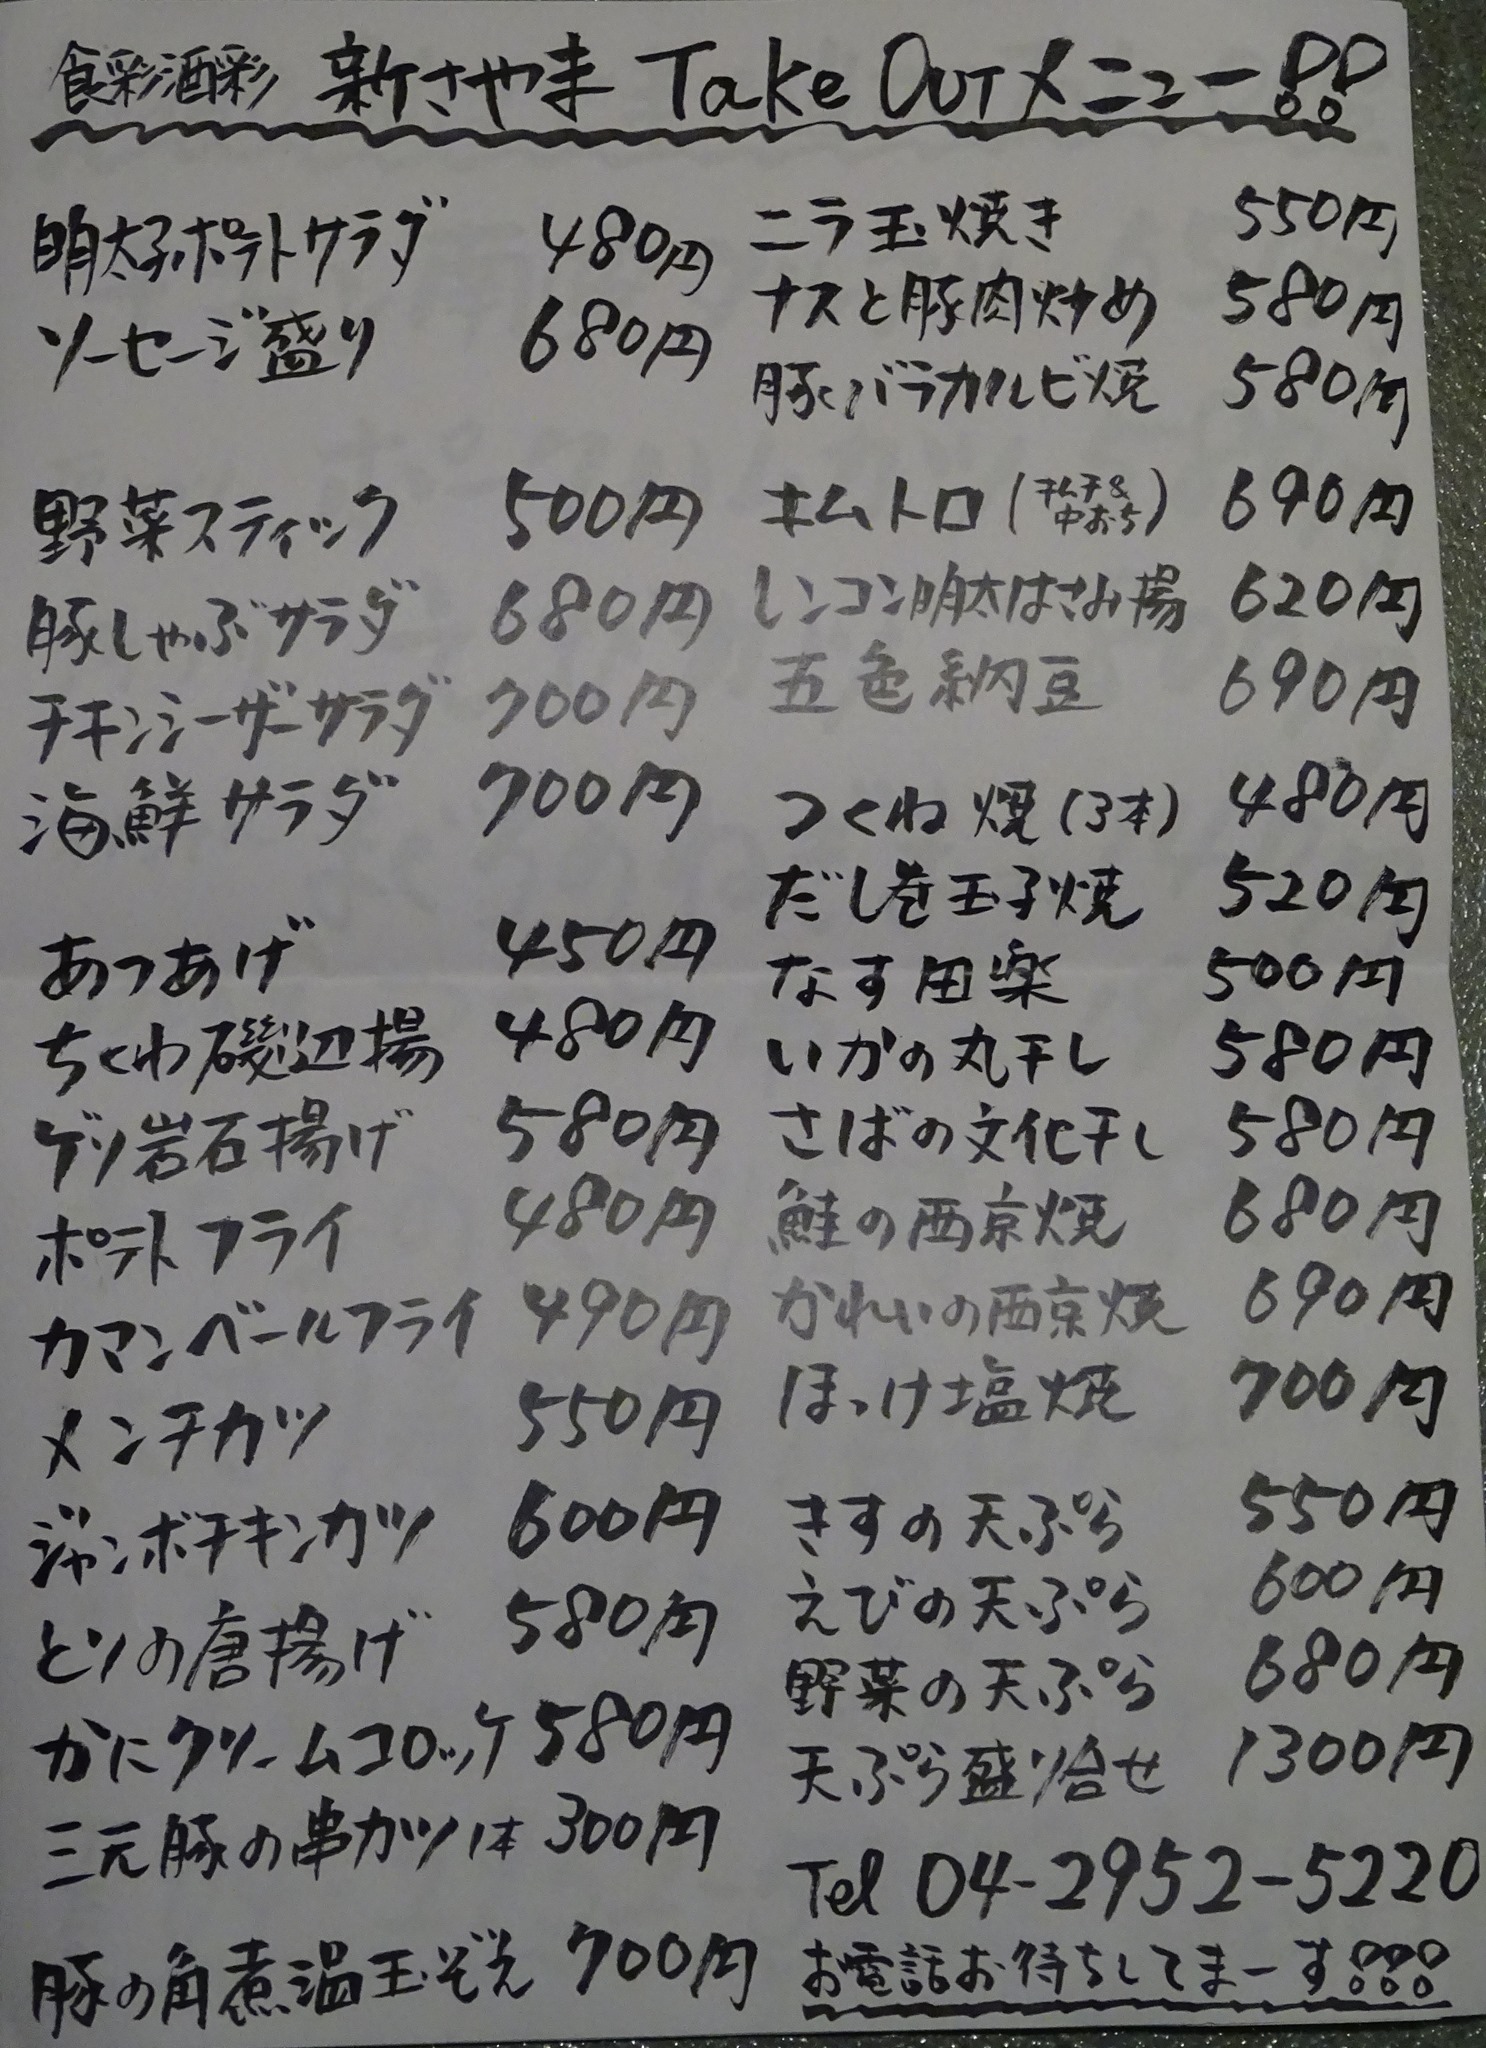 食彩酒彩 新さやま Take OUTメニュー!!
明太子ポテトサラダ 480円
ソーセージ盛り 680円
野菜スティック 500円
豚しゃぶサラダ 680円
チキンシーザーサラダ 700円
海鮮サラダ 700円
あつあげ 450円
ちくわ磯辺揚 480円
ゲソ岩石揚げ 580円
ポテトフライ 480円
カマンベールフライ 490円
メンチカツ 550円
ジャンボチキンカツ 600円
とりの唐揚げ 580円
かにクリームコロッケ 580円
三元豚の串カツ1本 300円
豚の角煮温玉ぞえ 700円
ニラ玉焼き 550円
ナスと豚肉炒め 580円
豚バラカルビ焼 580円
キムトロ(キムチ&中おち) 690円
レンコン明太はさみ揚 620円
五色納豆 690円
つくね焼(3本) 480円
だし巻玉子焼 520円
なす田楽 500円
いかの丸干し 580円
さばの文化干し 580円
鮭の西京焼 680円
かれいの西京焼 690円
ほっけ塩焼 700円
きすの天ぷら 550円
えびの天ぷら 600円
野菜の天ぷら 680円
天ぷら盛り合せ 1300円
Tel 04-2952-5220
お電話お待ちしてまーす!!!